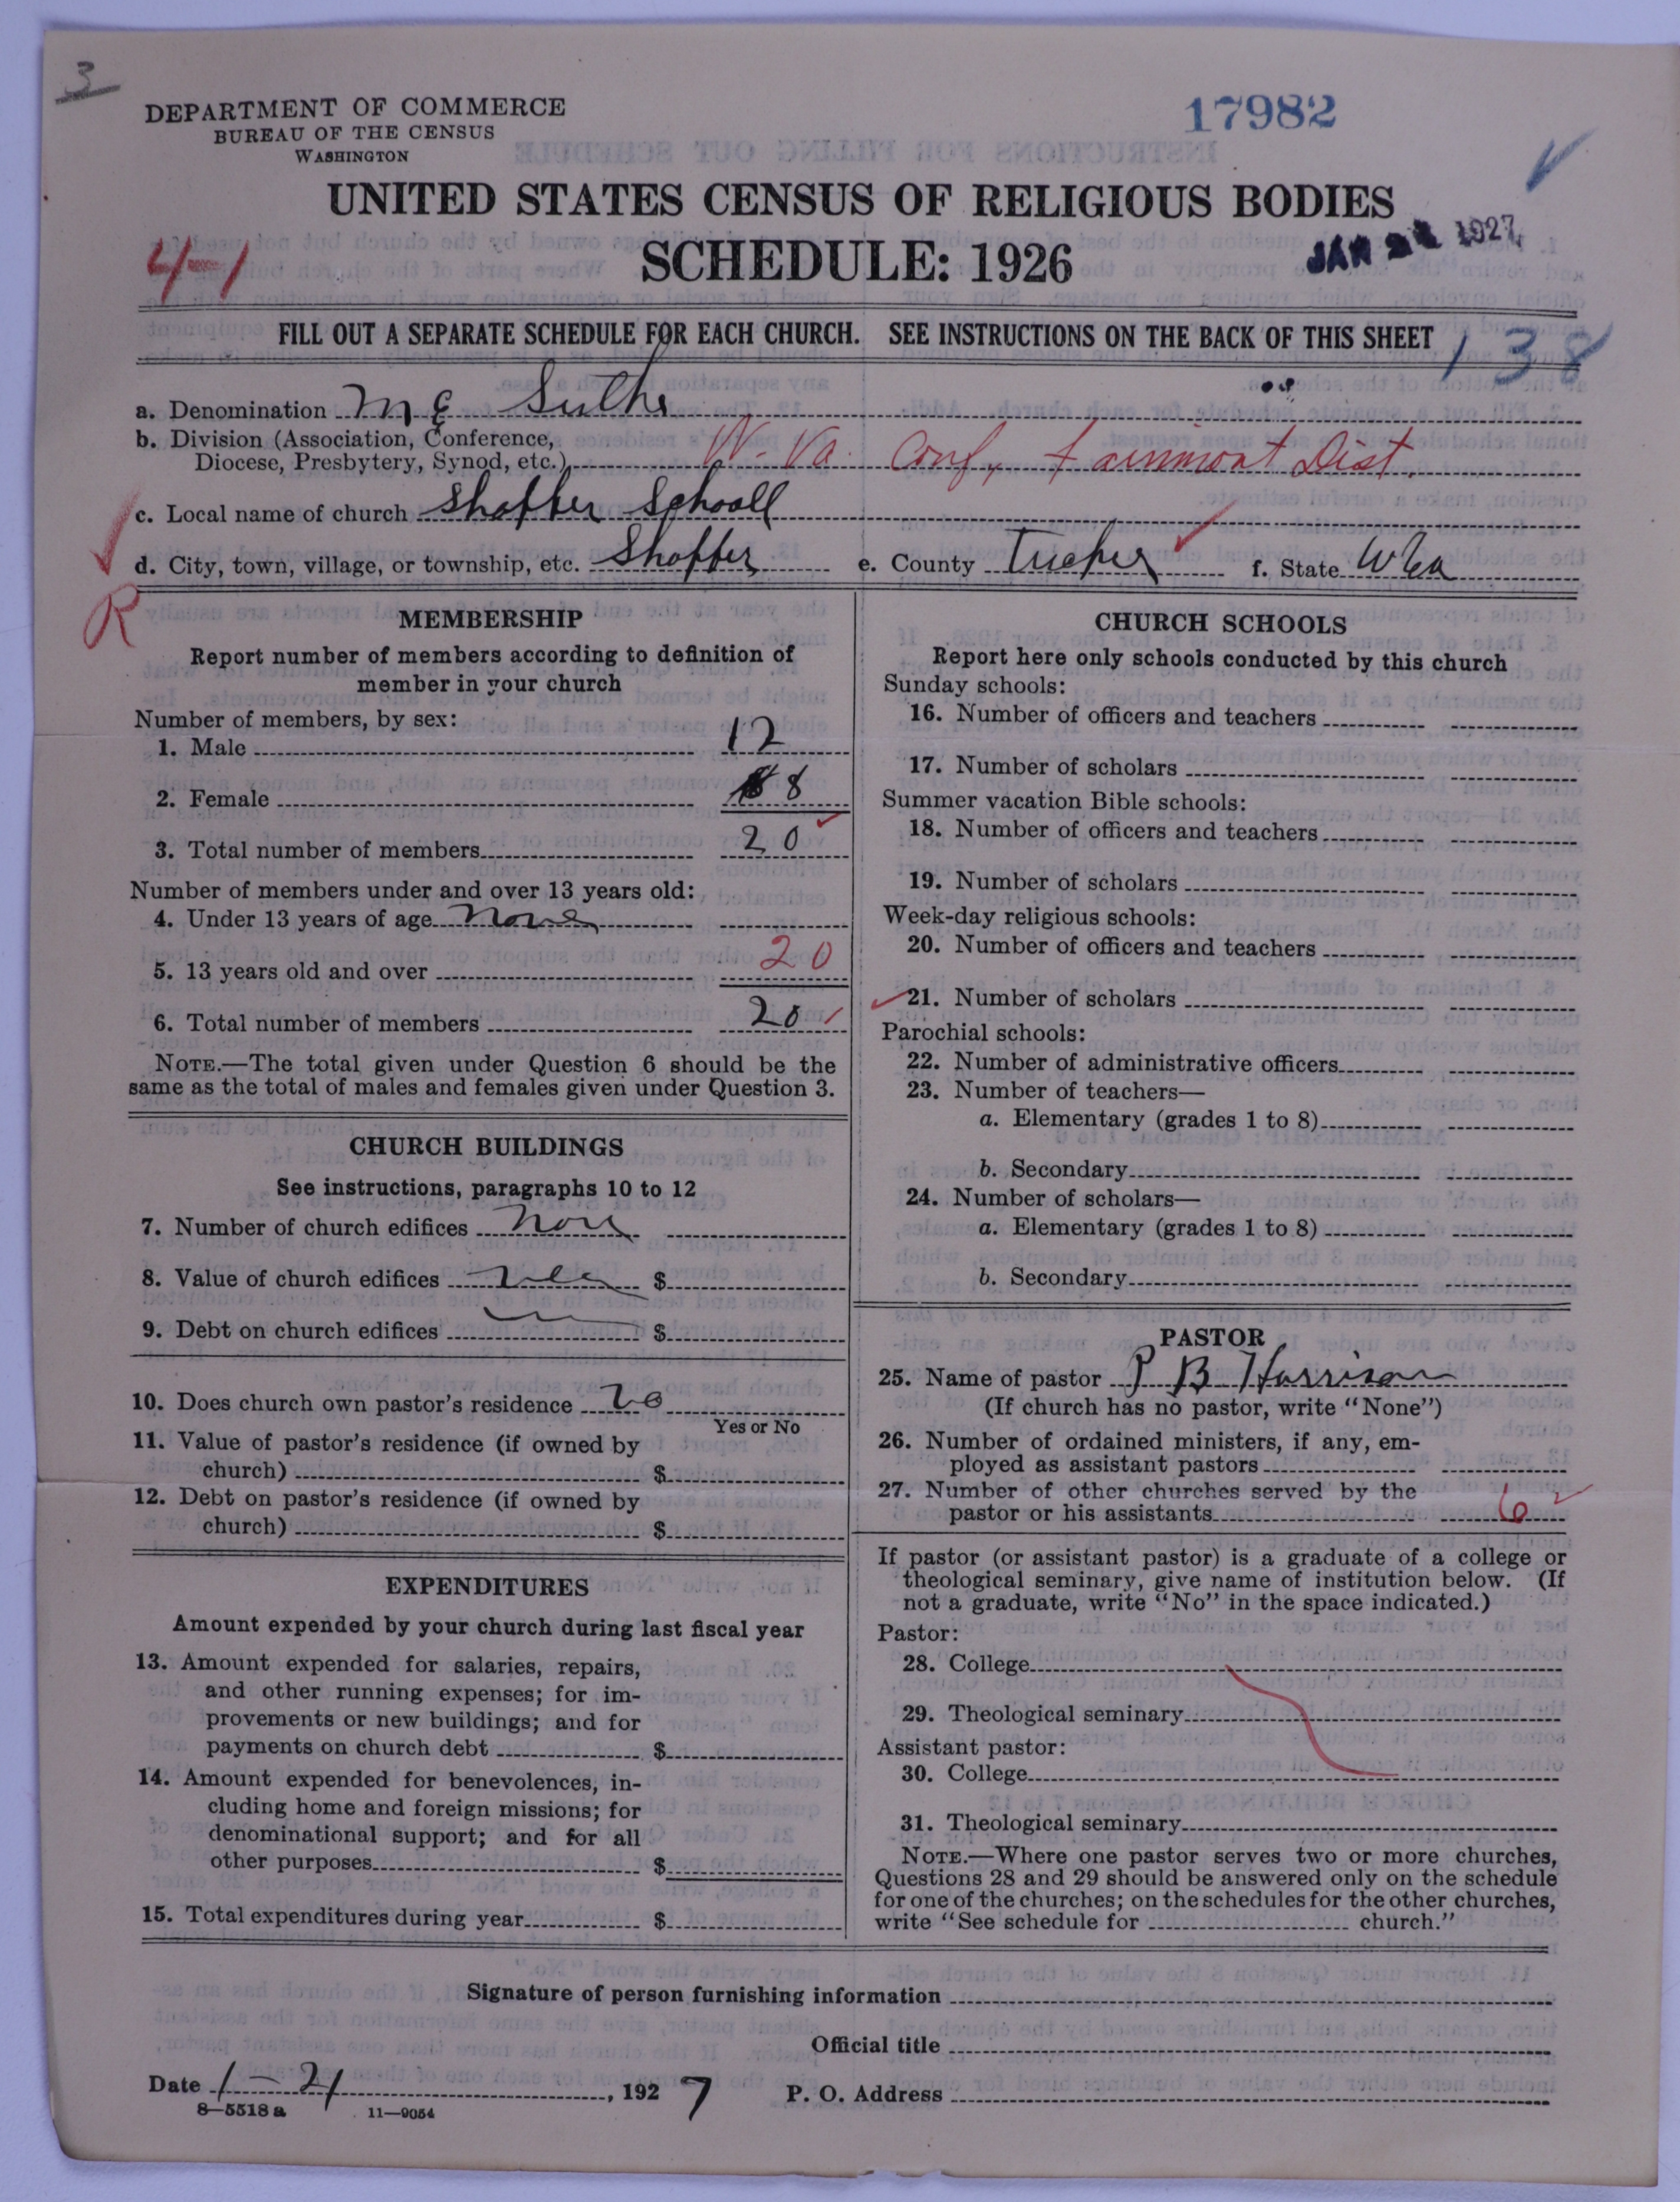 3
DEPARTMENT OF COMMERCE
BUREAU OF THE CENSUS
WASHINGTON
17982
UNITED STATES CENSUS OF RELIGIOUS BODIES
SCHEDULE: 1926
4-1
JAN 1927
FILL OUT A SEPARATE SCHEDULE FOR EACH CHURCH. SEE INSTRUCTIONS ON THE BACK OF THIS SHEET
138
a. Denomination M E
b. Division (Association, Conference,
Diocese, Presbytery, Synod, etc.) W. Va. Conf, Fairmont Dist.
c. Local name of church Shaffer Schooll
d. City, town, village, or township, etc. Shaffer e. County Tucker f. State W Va
R
MEMBERSHIP
Report number of members according to definition of
member in your church
Number of members, by sex:
1. Male 12
2. Female 8
3. Total number of members 20
Number of members under and over 13 years old:
4. Under 13 years of age None
5. 13 years old and over 20
6. Total number of members 20
NOTE.—The total given under Question 6 should be the
same as the total of males and females given under Question 3.
CHURCH BUILDINGS
See instructions, paragraphs 10 to 12
7. Number of church edifices Non
8. Value of church edifices $
9. Debt on church edifices $
10. Does church own pastor's residence no
Yes or No
11. Value of pastor's residence (if owned by
church) $
12. Debt on pastor's residence (if owned by
church) $
EXPENDITURES
Amount expended by your church during last fiscal year
13. Amount expended for salaries, repairs,
and other running expenses; for im-
provements or new buildings; and for
payments on church debt $
14. Amount expended for benevolences, in-
cluding home and foreign missions; for
denominational support; and for all
other purposes $
15. Total expenditures during year $
CHURCH SCHOOLS
Report here only schools conducted by this church
Sunday schools:
16. Number of officers and teachers
17. Number of scholars
Summer vacation Bible schools:
18. Number of officers and teachers
19. Number of scholars
Week-day religious schools:
20. Number of officers and teachers
21. Number of scholars
Parochial schools:
22. Number of administrative officers
23. Number of teachers—
a. Elementary (grades 1 to 8)
b. Secondary
24. Number of scholars—
a. Elementary (grades 1 to 8)
b. Secondary
PASTOR
25. Name of pastor P B Harrison
(If church has no pastor, write "None")
26. Number of ordained ministers, if any, em-
ployed as assistant pastors
27. Number of other churches served by the
pastor or his assistants 6
If pastor (or assistant pastor) is a graduate of a college or
theological seminary, give name of institution below. (If
not a graduate, write "No" in the space indicated.)
Pastor:
28. College
29. Theological seminary
Assistant pastor:
30. College
31. Theological seminary
NOTE.—Where one pastor serves two or more churches,
Questions 28 and 29 should be answered only on the schedule
for one of the churches; on the schedules for the other churches,
write "See schedule for church."
Signature of person furnishing information
Official title
Date 1-21, 1927 P. O. Address
8—5518 a 11—9054